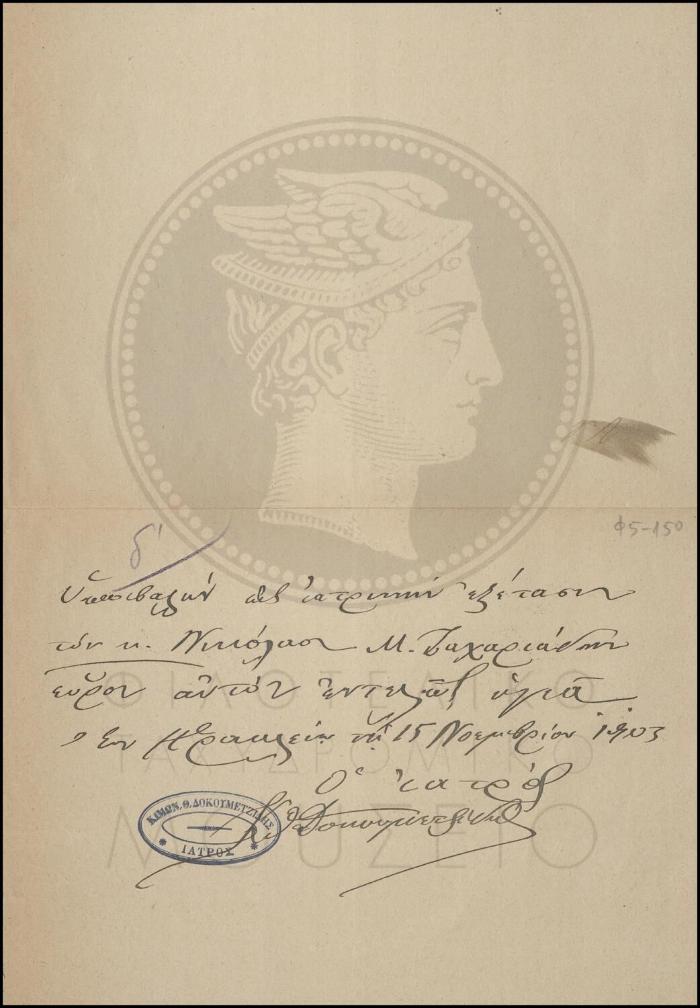 Φ5-150
δ'
Ὑποβαλὼν εἰς ἰατρικὴν ἐξέτασιν
τὸν κ. Νικόλαον Μ. Ζαχαριάδην
εὗρον αὐτὸν ἐντελῶς ὑγιᾶ
Ἐν Ἡρακλείῳ τῇ 15 Νοεμβρίου 1903
Ὁ ἰατρός
ΚΙΜΩΝ. Θ. ΔΟΚΟΥΜΕΤΖΙΔΗΣ
ΙΑΤΡΟΣ
ΦΙΛΟΤΕΛΙΚΟ
ΤΑΧΥΔΡΟΜΙΚΟ
ΜΟΥΣΕΙΟ